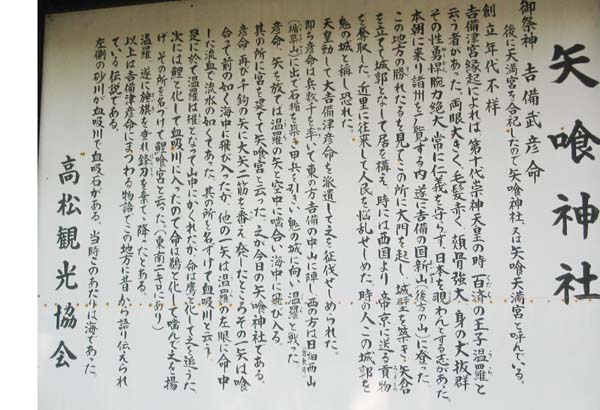 矢喰神社
御祭神 吉備武彦命
後に天満宮を合祀したので矢喰神社、又は矢喰天満宮と呼んでいる。
創立年代不祥
吉備津宮縁起によれば、第十代崇神天皇の時 百済の王子温羅と
云う者があった。両眼大きく、毛髪赤く、頬骨強大、身の丈抜群
その性勇悍、腕力絶大、常に仁義を守らず、日本を覗わんとする志があった。
本朝に来り諸州を一覧する内 遂に吉備の国新山(後方の山)に登った。
この地方の勝れたるを見て、この所に大門を起し、城壁を築き、矢倉
を立てゝ城郭となして居を構え、時には西国より帝京に送る貢物
を奪取した。近里に往来して人民を悩乱せしめた。時の人、この城郭を
鬼の城と稱し恐れた。
天皇勅して大吉備津彦命を派遣して之を征伐せしめられた。
即ち彦命は兵数千を率いて東の方吉備の中山に陣し 西の方は日畑西山
(楯築山)に出て石楯を築き 甲兵を引き 鬼の城に向い 温羅と戦った。
彦命 矢を放てば温羅の矢と空中に噛合い 海中に飛び入る。
其の所に宮を建てて矢喰宮と云った。之が今日の矢喰神社である。
彦命 再び千鈞の矢に大矢二筋を番え 発したところその一矢は喰
合って前の如く海中に飛び入ったが、他の一矢は温羅の左眼に命中
した流血で流水の如くであった。其の所を名ずけて血吸川と云う。
是に於て温羅は雉となって山中にかくれたが、命は鷹と化して之を追うた
次には鯉と化して血吸川に入ったので命は鵜と化して噛んで之を揚
げ その所を名つけて鯉喰宮と云った。(東南二キロにあり)
温羅 遂に旌旗を垂れ 鋒刃を棄て、降ったとある。
以上は吉備津彦命にまつわる物語で、この地方に昔から語り伝えられ
ている伝説である。
左側の砂川が血吸川で血吸石がある。当時このあたりは海であった。
高松観光協会